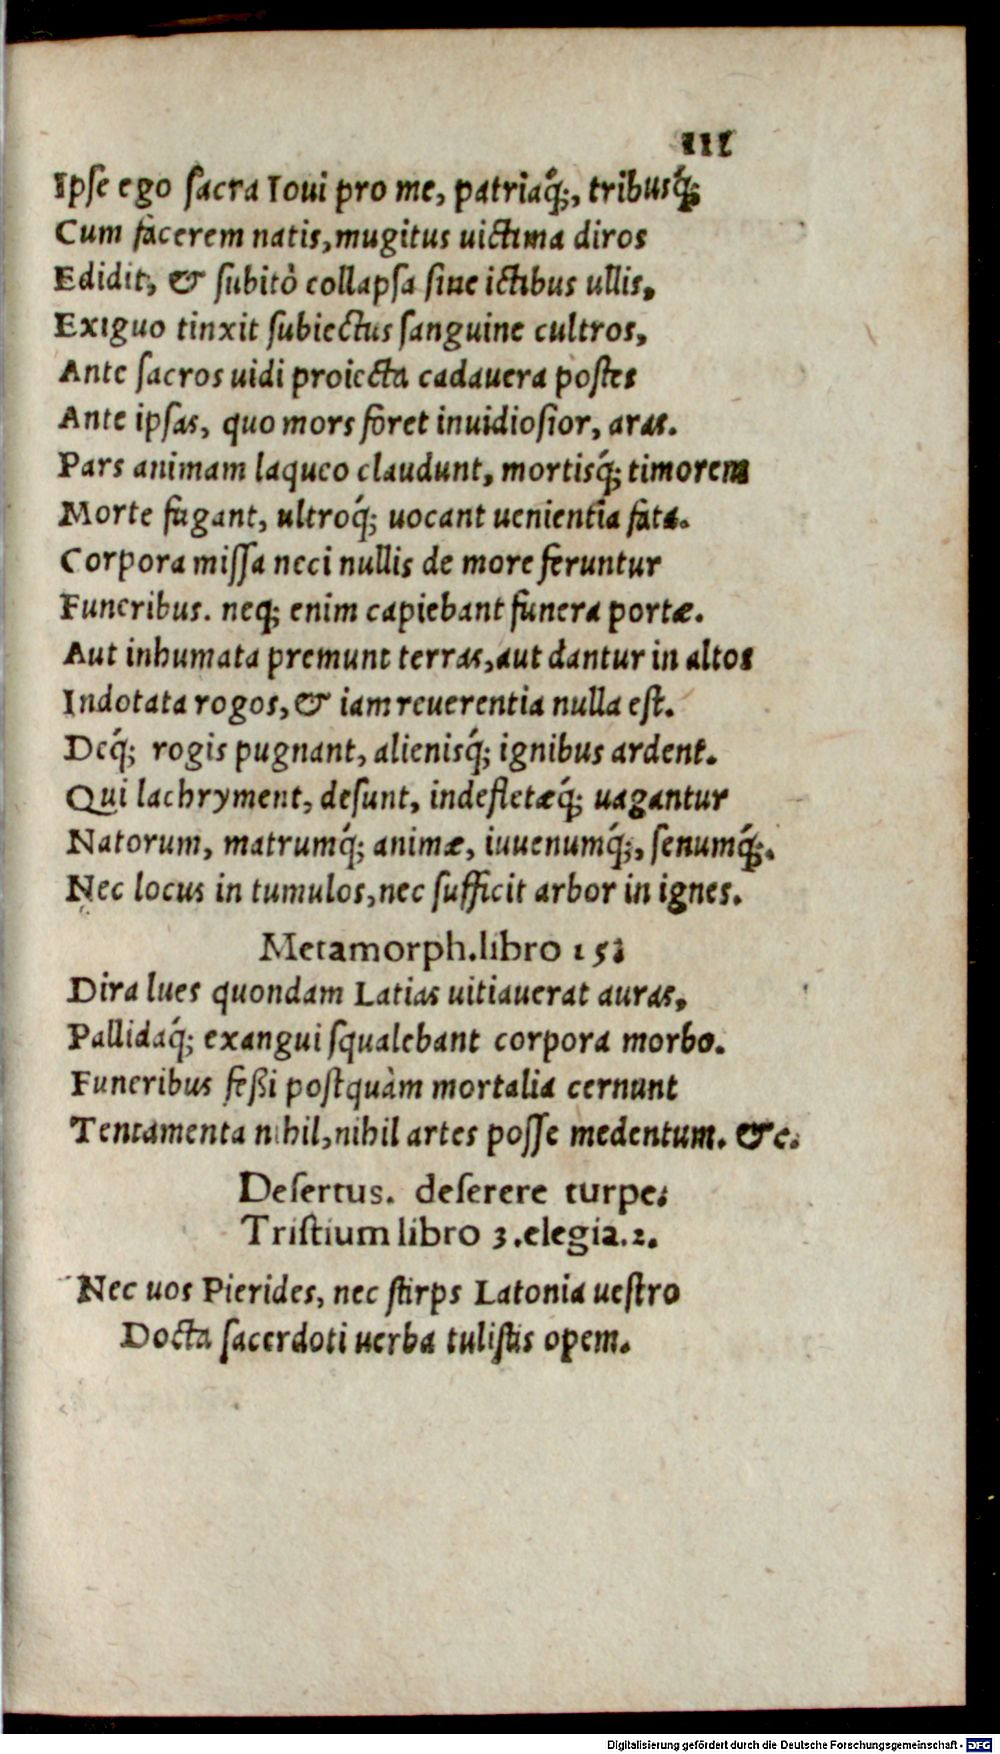 111
Ipse ego sacra Ioui pro me, patriaq́;, tribusq́;
Cum facerem natis, mugitus uictima diros
Edidit, & subitò collapsa sine ictibus ullis,
Exiguo tinxit subiectus sanguine cultros,
Ante sacros uidi proiecta cadauera postes
Ante ipsas, quo mors foret inuidiosior, aras.
Pars animam laqueo claudunt, mortisq́; timorem
Morte fugant, ultroq́; uocant uenientia fata.
Corpora missa neci nullis de more feruntur
Funeribus. neq; enim capiebant funera portæ.
Aut inhumata premunt terras, aut dantur in altos
Indotata rogos, & iam reuerentia nulla est.
Deq́; rogis pugnant, alienisq́; ignibus ardent.
Qui lachryment, desunt, indefletæq́; uagantur
Natorum, matrumq́; animæ, iuuenumq́;, senumq́;.
Nec locus in tumulos, nec sufficit arbor in ignes.
Metamorph. libro 15.
Dira lues quondam Latias uitiauerat auras,
Pallidaq́; exangui squalebant corpora morbo.
Funeribus feßi postquàm mortalia cernunt
Tentamenta nihil, nihil artes posse medentum. &c.
Desertus. deserere turpe.
Tristium libro 3. elegia. 2.
Nec uos Pierides, nec stirps Latonia uestro
Docta sacerdoti uerba tulistis opem.
Digitalisierung gefördert durch die Deutsche Forschungsgemeinschaft - DFG